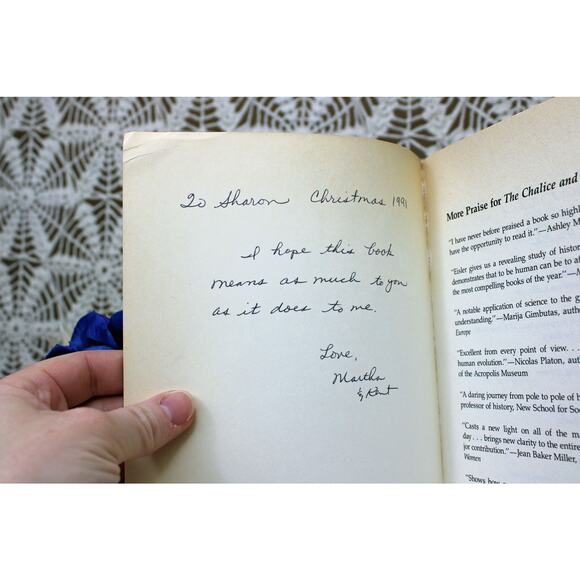 To Sharon Christmas 1991
I hope this book
means as much to you
as it does to me.
Love,
Martha
& Kent
More Praise for The Chalice and
"I have never before praised a book so highl
have the opportunity to read it."—Ashley M
"Eisler gives us a revealing study of histor
demonstrates that to be human can be to af
the most compelling books of the year."—
"A notable application of science to the g
understanding."—Marija Gimbutas, autho
Europe
"Excellent from every point of view. . .
human evolution."—Nicolas Platon, auth
of the Acropolis Museum
"A daring journey from pole to pole of h
professor of history, New School for So
"Casts a new light on all of the m
day . . . brings new clarity to the entire
jor contribution."—Jean Baker Miller,
Women
"Shows how